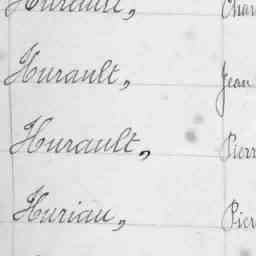 Hurault, Jean
Hurault, Pierr
Huriau, Pier